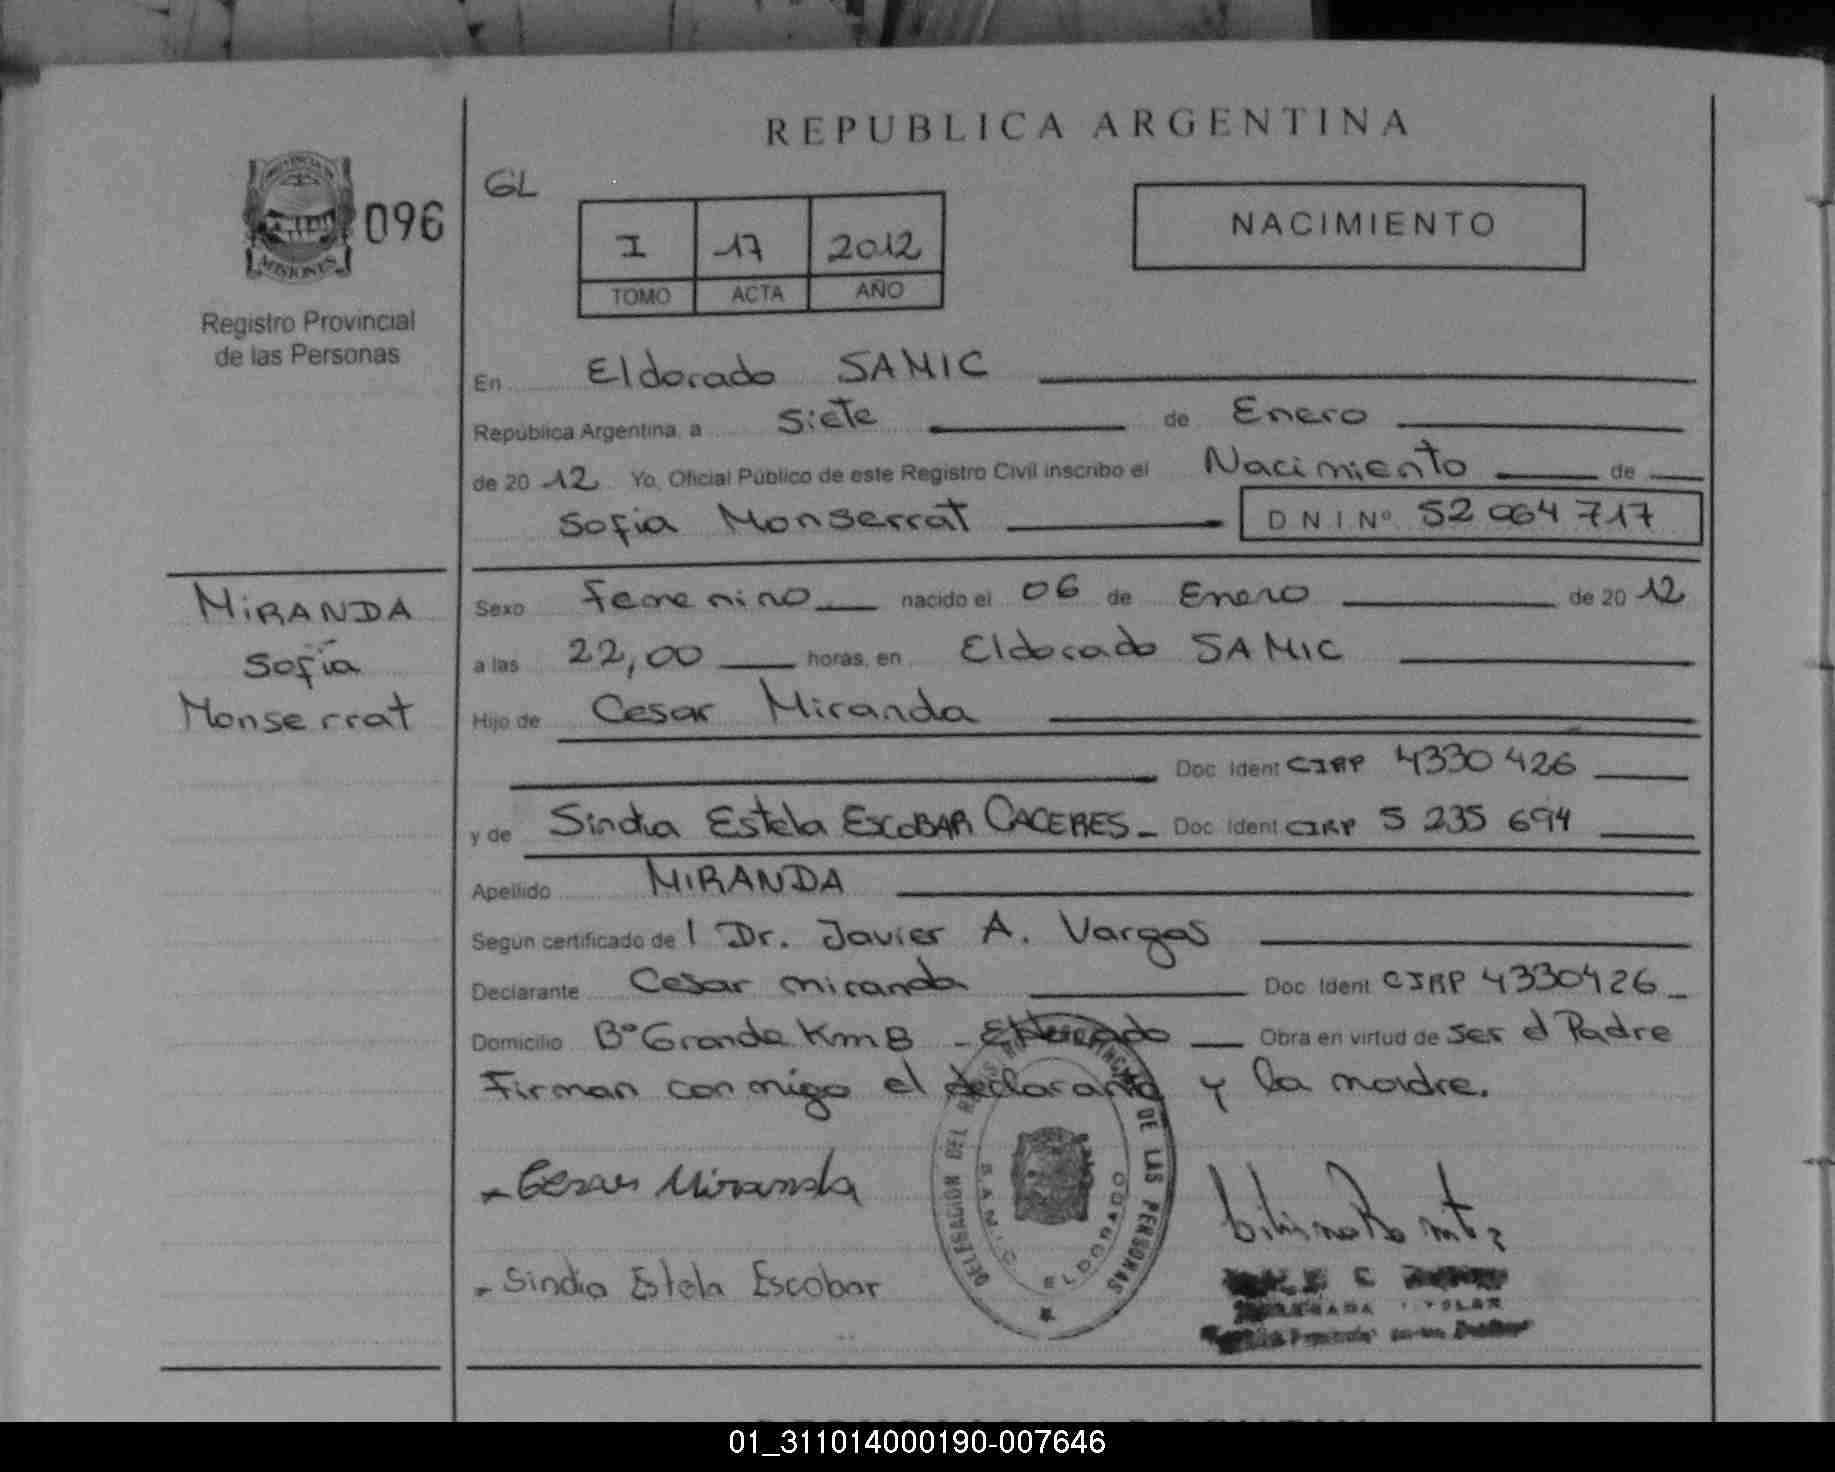 REPUBLICA ARGENTINA
PROVINCIA DE
MISIONES
096
Registro Provincial
de las Personas
GL
I 17 2012
TOMO ACTA AÑO
NACIMIENTO
En Eldorado SAMIC
República Argentina, a Siete de Enero
de 2012 Yo, Oficial Público de este Registro Civil inscribo el Nacimiento de
Sofia Monserrat D N I Nº 52 064 717
MIRANDA
Sofía
Monserrat
Sexo Femenino nacido el 06 de Enero de 2012
a las 22,00 horas, en Eldorado SAMIC
Hijo de Cesar Miranda
Doc. Ident CIRP 4330 426
y de Sindia Estela ESCOBAR CACERES Doc. Ident CIRP 5 235 694
Apellido MIRANDA
Según certificado de l Dr. Javier A. Vargas
Declarante Cesar miranda Doc. Ident CIRP 4330426
Domicilio Bº Grande Km 8 - Eldorado Obra en virtud de Ser el Padre
Firman conmigo el declarante y la madre.
Cesar Miranda
Sindia Estela Escobar
DELEGACION DEL REGISTRO PROVINCIAL DE LAS PERSONAS
SAMIC ELDORADO
01_311014000190-007646